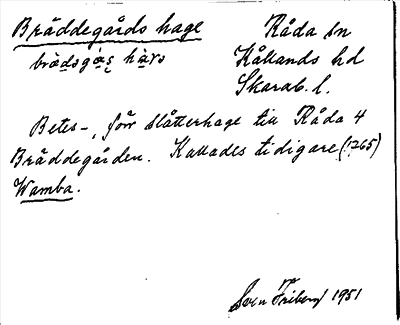 Bräddegårds hage
Råda sn
brädsgás
Kållands hd
Skarab. l.
Betes-, förr slåtterhage till Råda 4
Bräddegården. Kallades tidigare (1765)
Wamba.
Sven Friberg 1951